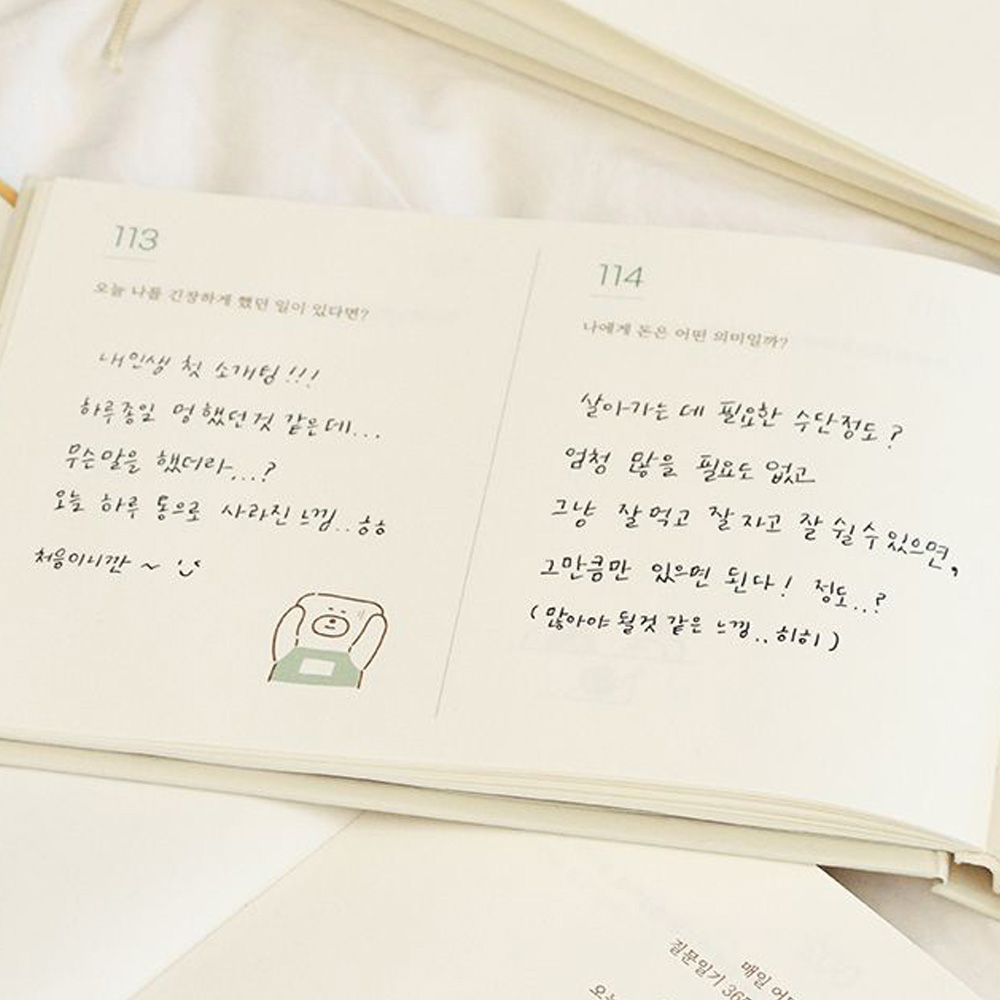 113
오늘 나를 긴장하게 했던 일이 있다면?
내 인생 첫 소개팅!!!
하루종일 멍 했던것 같은데...
무슨말을 했더라...?
오늘 하루 통으로 사라진 느낌..ㅎㅎ
처음이니깐 ~
114
나에게 돈은 어떤 의미일까?
살아가는 데 필요한 수단정도?
엄청 많을 필요도 없고
그냥 잘먹고 잘자고 잘 쉴 수 있으면,
그만큼만 있으면 된다! 정도..?
(많아야 될것 같은 느낌..히히)
매일
질문일기 36